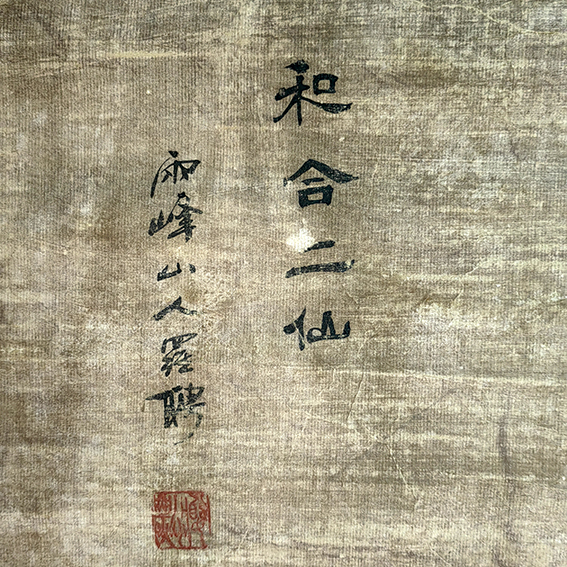 和合二仙
兩峰山人羅聘